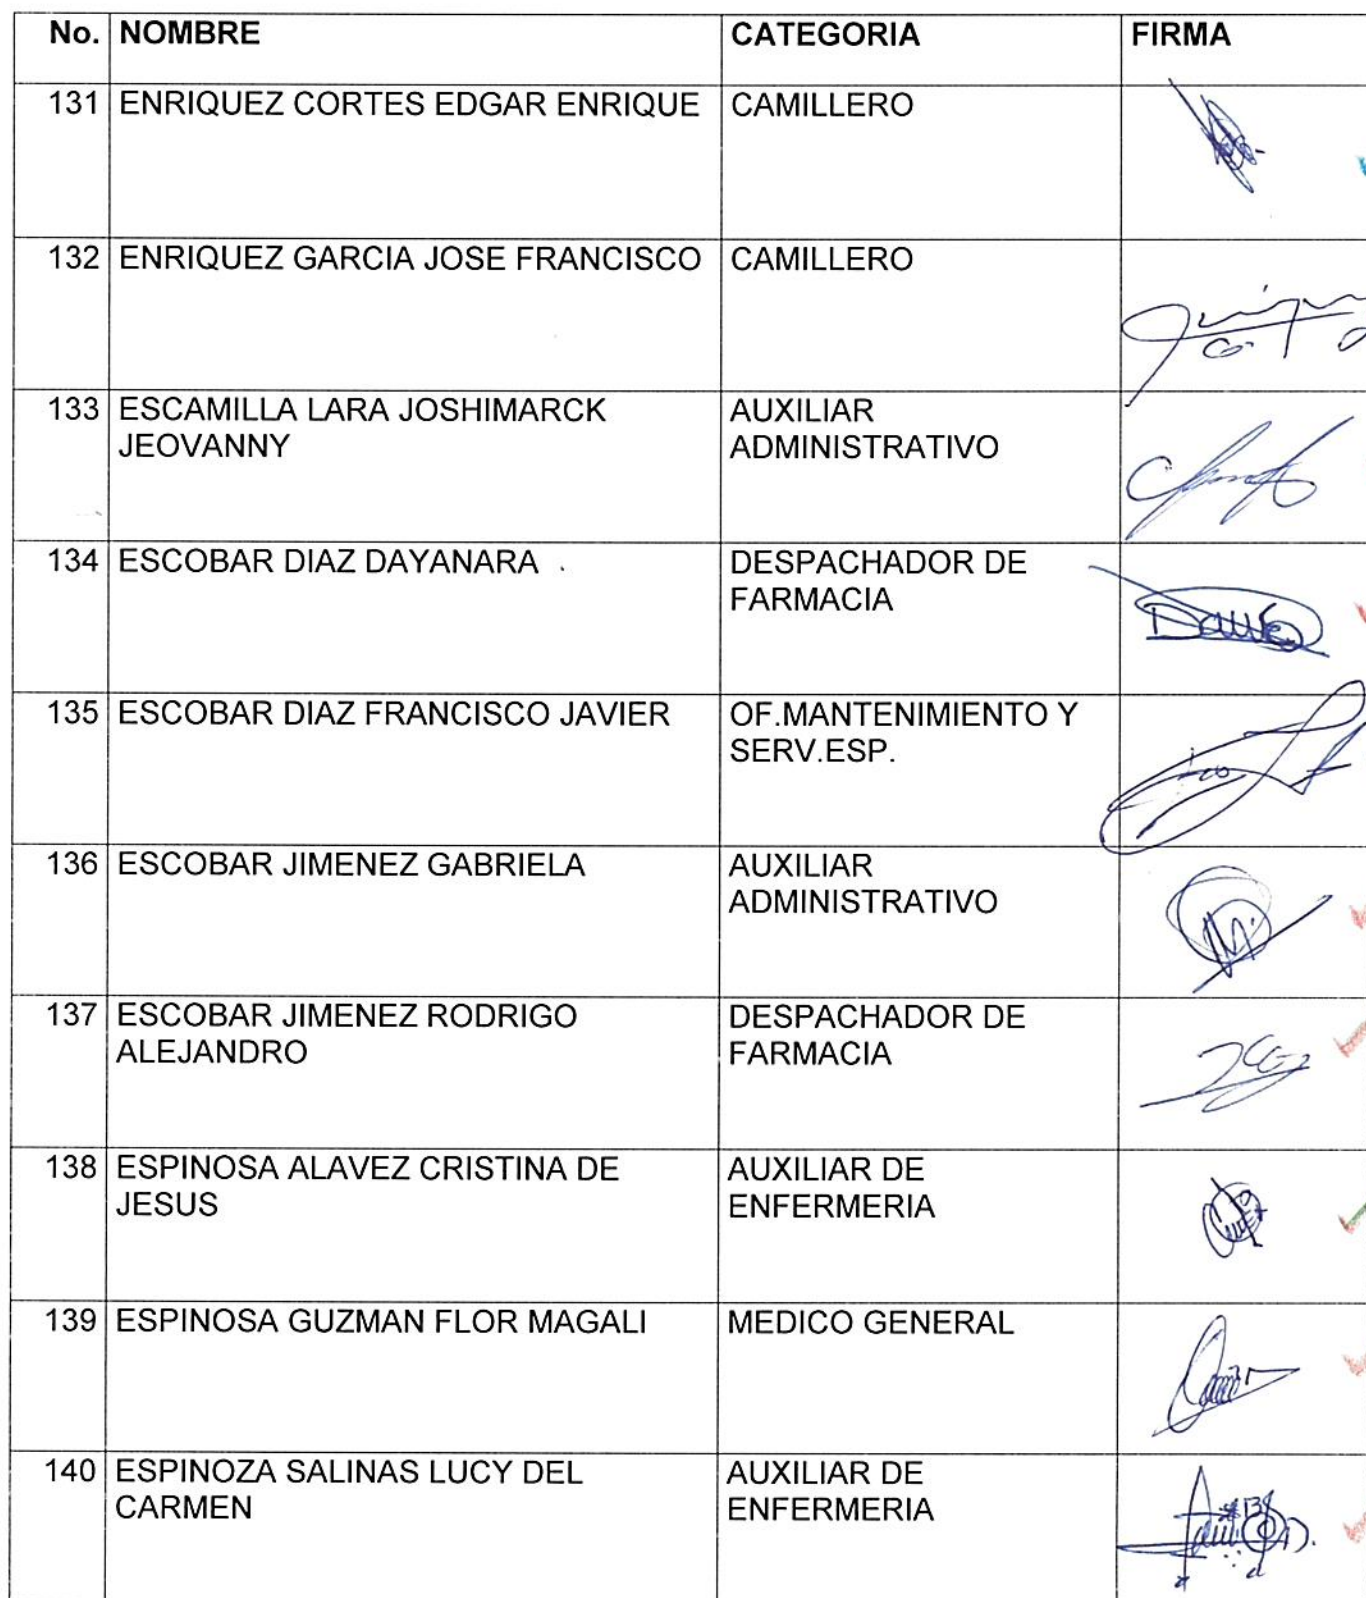 No. NOMBRE CATEGORIA FIRMA
131 ENRIQUEZ CORTES EDGAR ENRIQUE CAMILLERO
132 ENRIQUEZ GARCIA JOSE FRANCISCO CAMILLERO
133 ESCAMILLA LARA JOSHIMARCK AUXILIAR
JEOVANNY ADMINISTRATIVO
134 ESCOBAR DIAZ DAYANARA DESPACHADOR DE
FARMACIA
135 ESCOBAR DIAZ FRANCISCO JAVIER OF.MANTENIMIENTO Y
SERV.ESP.
136 ESCOBAR JIMENEZ GABRIELA AUXILIAR
ADMINISTRATIVO
137 ESCOBAR JIMENEZ RODRIGO DESPACHADOR DE
ALEJANDRO FARMACIA
138 ESPINOSA ALAVEZ CRISTINA DE AUXILIAR DE
JESUS ENFERMERIA
139 ESPINOSA GUZMAN FLOR MAGALI MEDICO GENERAL
140 ESPINOZA SALINAS LUCY DEL AUXILIAR DE
CARMEN ENFERMERIA